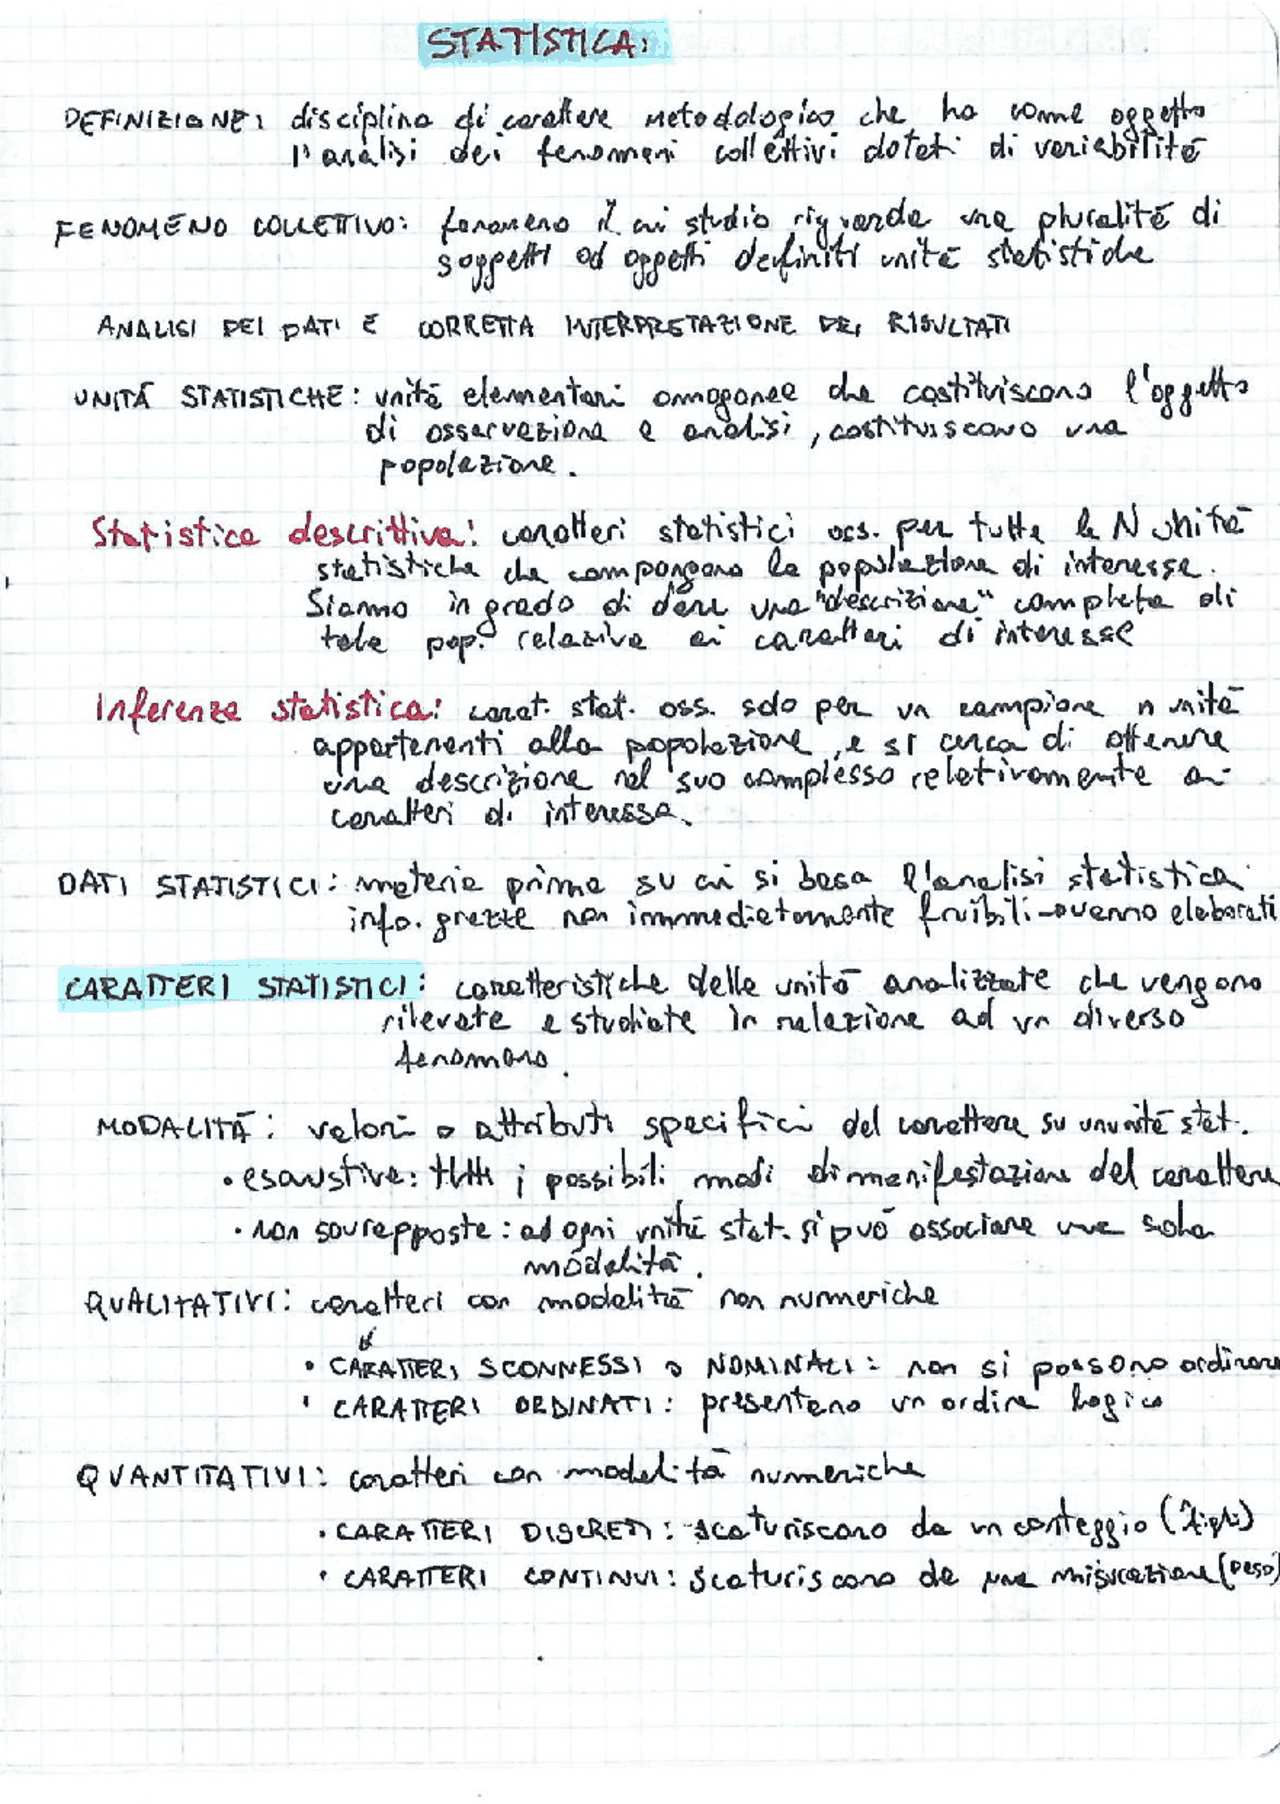 STATISTICA:
DEFINIZIONE: disciplina di carattere metodologico che ha come oggetto
l'analisi dei fenomeni collettivi dotati di variabilità
FENOMENO COLLETTIVO: fenomeno il cui studio riguarda una pluralità di
soggetti od oggetti definiti unità statistiche
ANALISI DEI DATI E CORRETTA INTERPRETAZIONE DEI RISULTATI
UNITÁ STATISTICHE: unità elementari omogenee che costituiscono l'oggetto
di osservazione e analisi, costituiscono una
popolazione.
Statistica descrittiva: caratteri statistici oss. per tutte le N unità
statistiche che compongono la popolazione di interesse.
Siamo in grado di dare una "descrizione" completa di
tale pop. relativa ai caratteri di interesse
Inferenza statistica: carat. stat. oss. solo per un campione n unità
appartenenti alla popolazione, e si cerca di ottenere
una descrizione nel suo complesso relativamente ai
caratteri di interesse.
DATI STATISTICI: materia prima su cui si basa l'analisi statistica
info. grezze non immediatamente fruibili → vanno elaborati
CARATTERI STATISTICI: caratteristiche delle unità analizzate che vengono
rilevate e studiate in relazione ad un diverso
fenomeno.
MODALITÁ: valori o attributi specifici del carattere su un unità stat.
• esaustive: tutti i possibili modi di manifestazione del carattere
• non sovrapposte: ad ogni unità stat. si può associare una sola
modalità.
QUALITATIVI: caratteri con modalità non numeriche
• CARATTERI SCONNESSI o NOMINALI: non si possono ordinare
• CARATTERI ORDINATI: presentano un ordine logico
QUANTITATIVI: caratteri con modalità numeriche
• CARATTERI DISCRETI: scaturiscono da un conteggio (figli)
• CARATTERI CONTINUI: scaturiscono da una misurazione (peso)